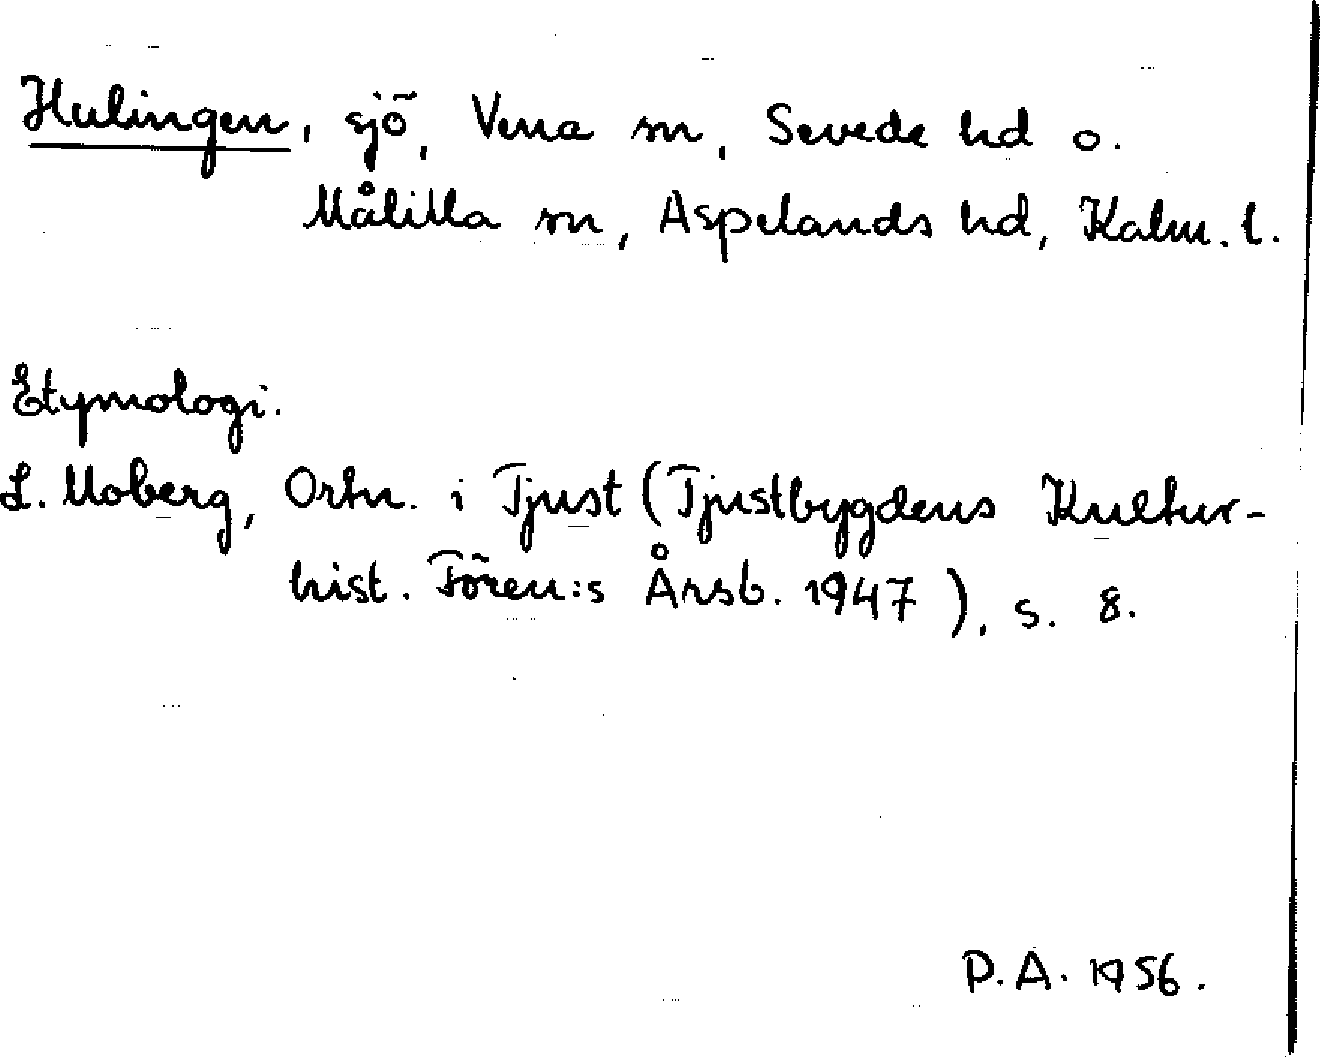 Hulingen, sjö, Vena sn, Sevede hd o.
Målilla sn, Aspelands hd, Kalm. l.
Etymologi.
L. Moberg, Ortn. i Tjust (Tjustbygdens Kultur-
hist. Fören:s Årsb. 1947), s. 8.
P.A. 1956.